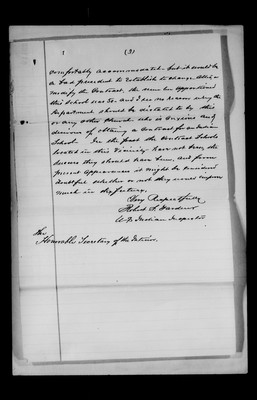 (3)
comfortably accommodated. but it would be
a bad precedent to establish to change alter or
modify the Contract, the number apportioned
this School was 50. and I see no reason why the
Department should be dictated to by this
or any other Church who is anxious and
desirous of obtaining a Contract for an Indian
School. In the past the Contract Schools
located in this vicinity have not been the
success they should have been, and from
present appearances it might be considered
doubtful whether or not they will improve
much in the future.
Very Respectfully
Robert S. Gardner
U.S. Indian Inspector
The
Honorable Secretary of the Interior.